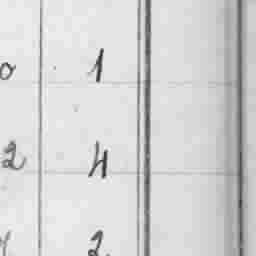 0 1
2 4
2